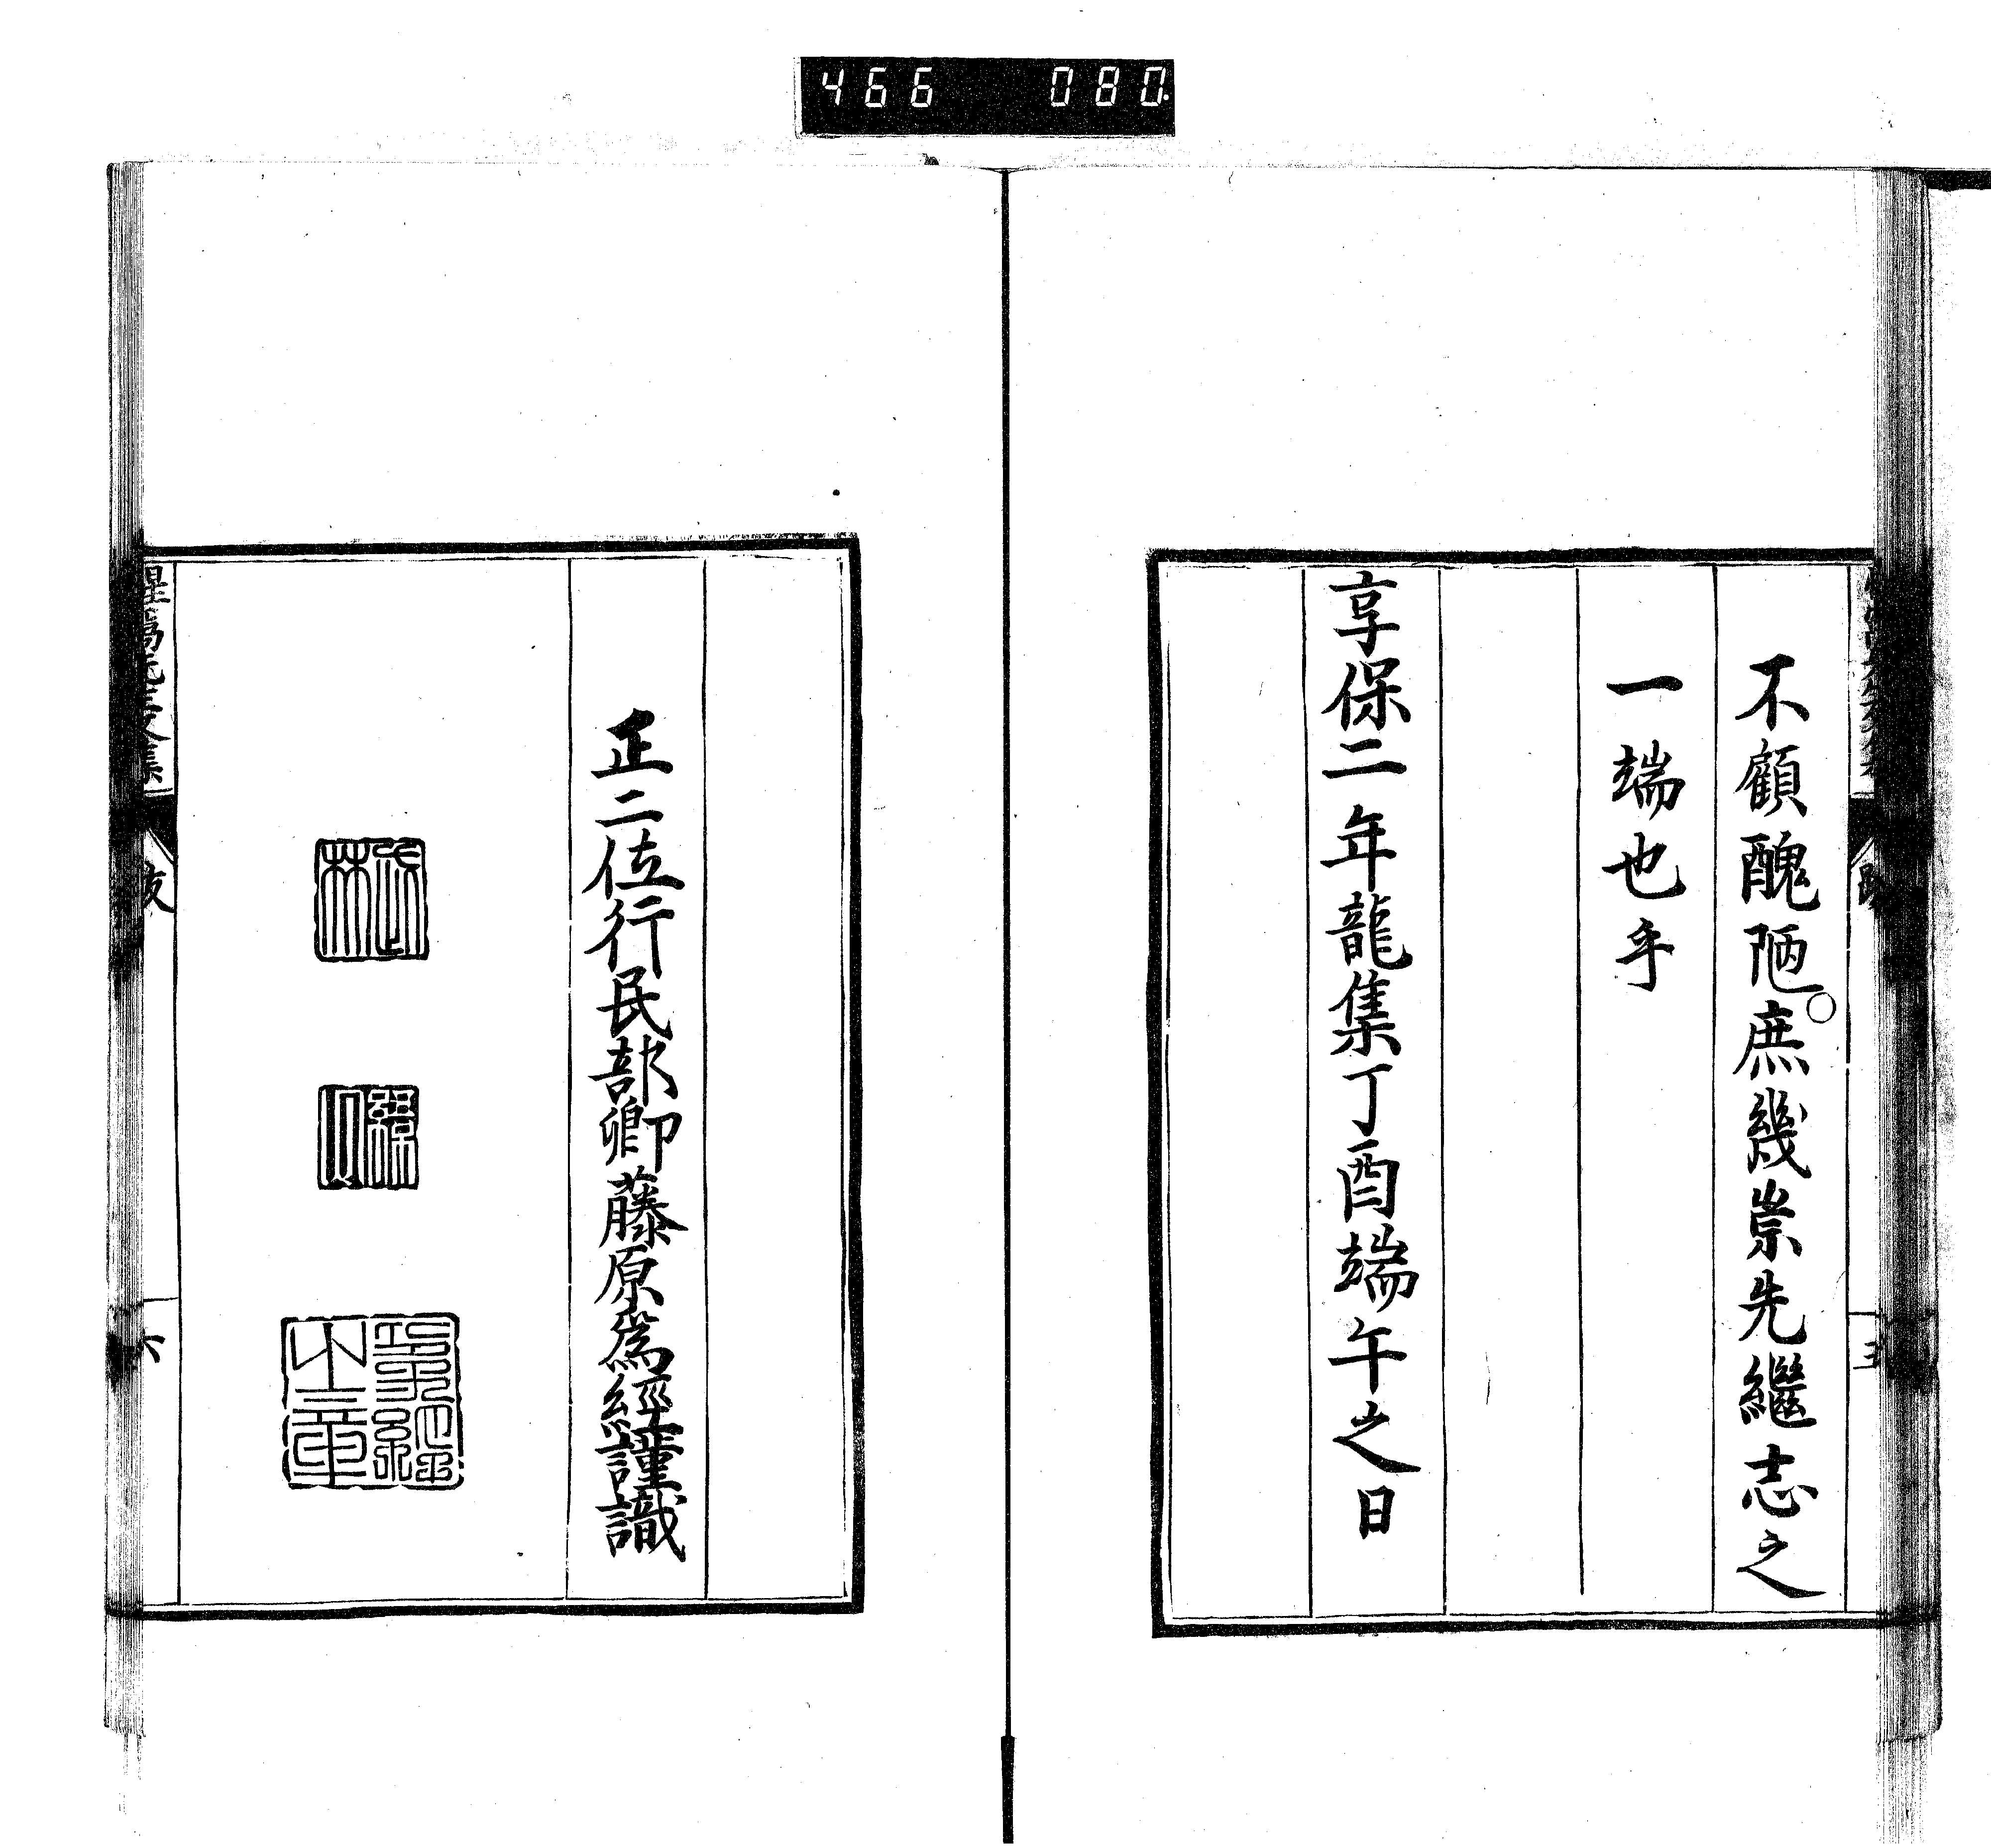 466 080
不顧醜陋○庶幾崇先繼志之
一端也乎
享保二年龍集丁酉端午之日
正二位行民部卿藤原爲經謹識
跋
六